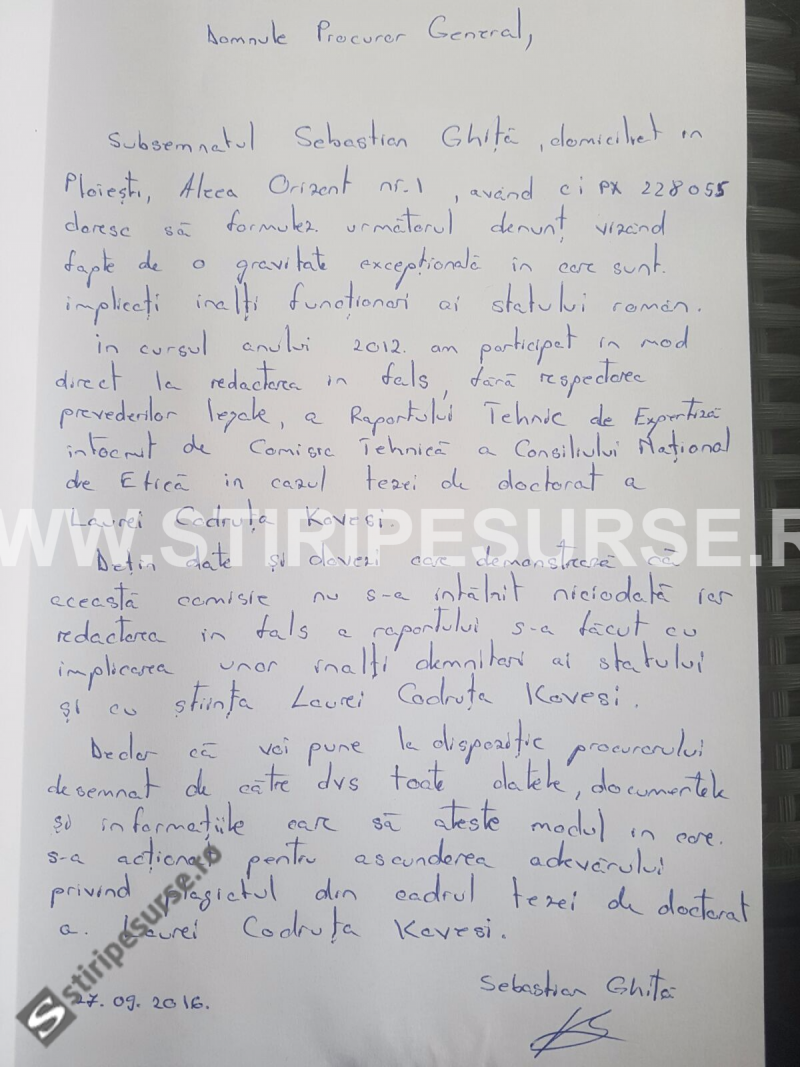 Domnule Procuror General,
Subsemnatul Sebastian Ghiță, domiciliat in
Ploiești, Aleea Orizont nr. 1, având ci PX 228055
doresc să formulez următorul denunț vizând
fapte de o gravitate excepțională in care sunt
implicați inalți funcționari ai statului român.
In cursul anului 2012. am participat in mod
direct la redactarea in fals, fără respectarea
prevederilor legale, a Raportului Tehnic de Expertiză
intocmit de Comisia Tehnică a Consiliului Național
de Etică in cazul tezei de doctorat a
Laurei Codruța Kovesi.
WWW.STIRIPESURSE.R
Dețin date și dovezi care demonstrează că
această comisie nu s-a intâlnit niciodată iar
redactarea in fals a raportului s-a făcut cu
implicarea unor inalți demnitari ai statului
și cu știința Laurei Codruța Kovesi.
Declar că voi pune la dispoziție procurorului
desemnat de către dvs toate datele, documentele
și informațiile care să ateste modul in care.
s-a acționat pentru ascunderea adevărului
privind plagiatul din cadrul tezei de doctorat
a. Laurei Codruța Kovesi.
Sebastian Ghiță
27.09.2016.
S stiripesurse.ro